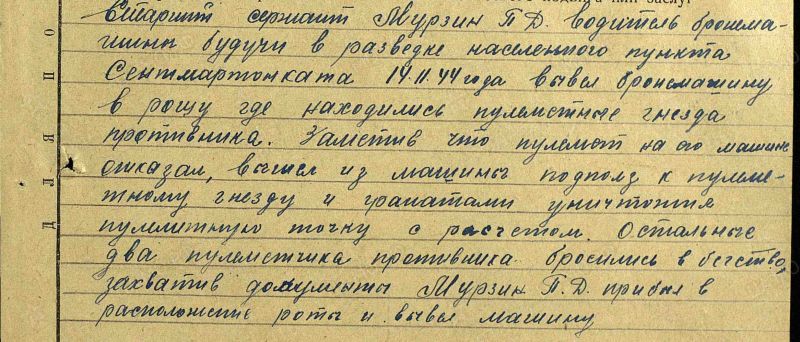 Старший сержант Мурзин П.Д. водитель бронема-
шины будучи в разведке населенного пункта
Сентмартонката 14.11.44 года вывел бронемашину
в рощу где находились пулеметные гнезда
противника. Заметив что пулемет на его машине
отказал, вышел из машины подполз к пулеме-
тному гнезду и гранатами уничтожил
пулеметную точку с расчетом. Остальные
два пулеметчика противника бросились в бегство,
захватив документы Мурзин П.Д. прибыл в
расположение роты и вывел машину
ДЛЯ ПО